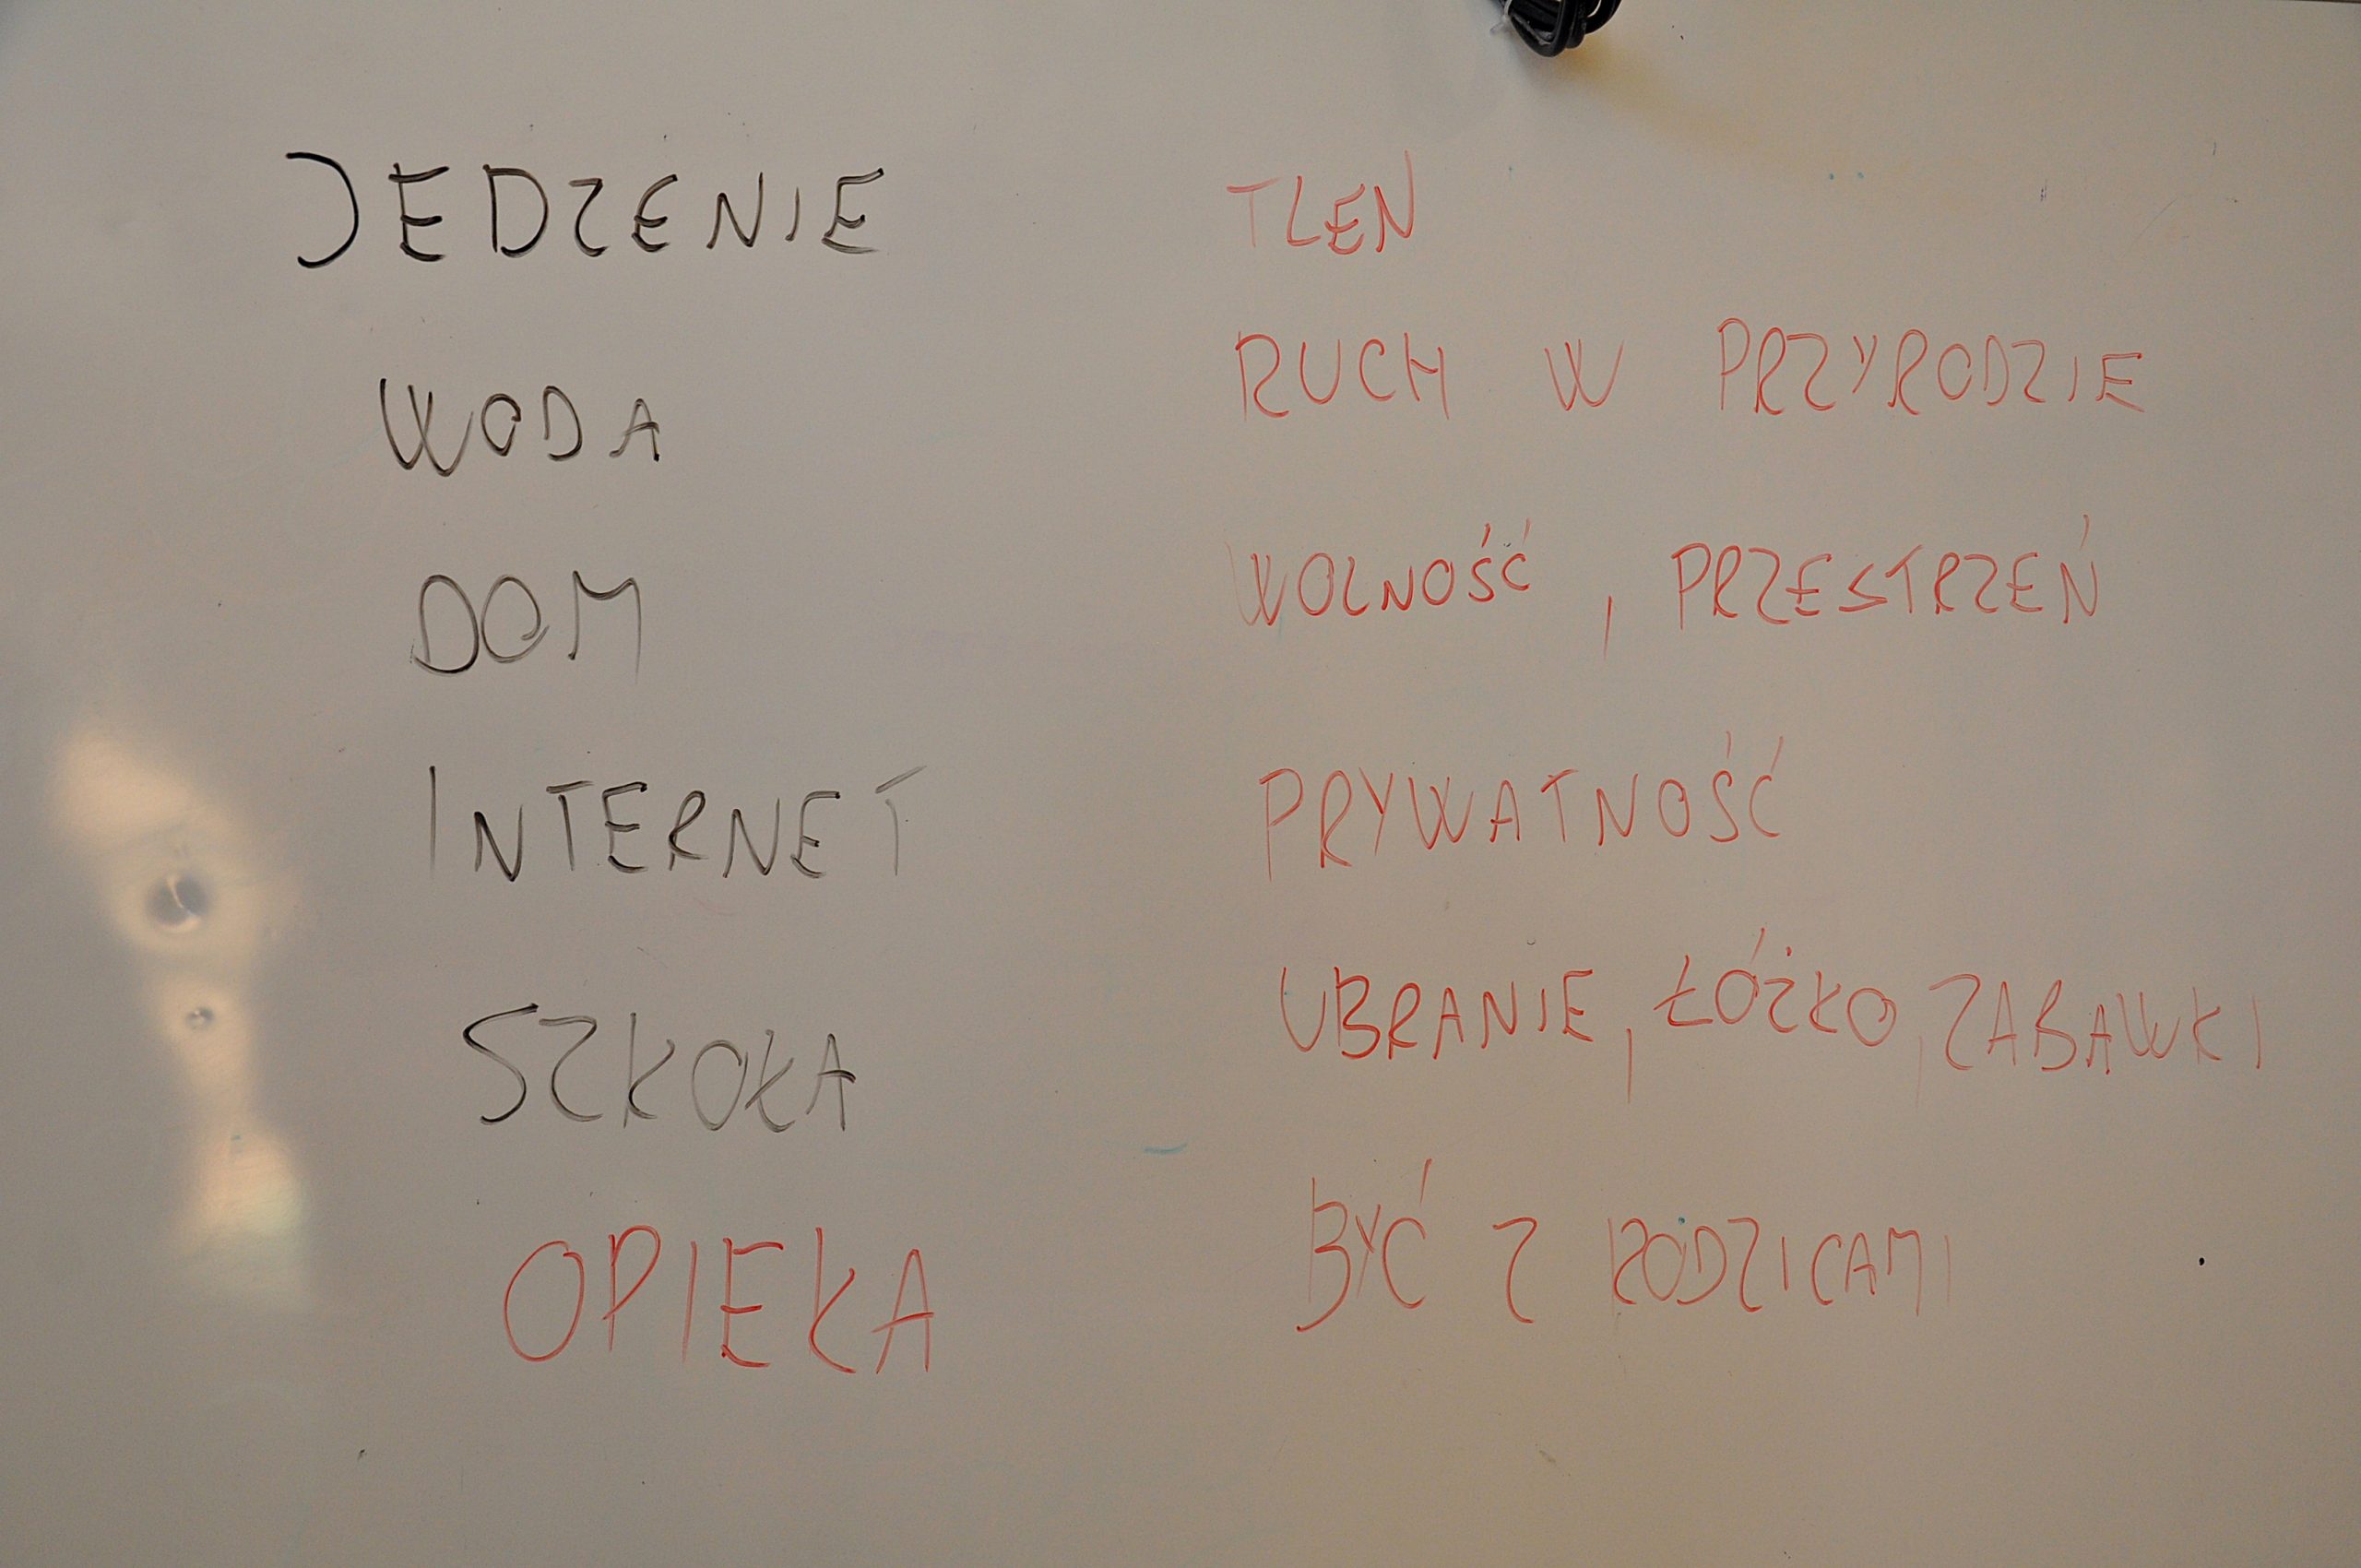 JEDZENIE
WODA
DOM
INTERNET
SZKOŁA
OPIEKA
TLEN
RUCH W PRZYRODZIE
WOLNOŚĆ, PRZESTRZEŃ
PRYWATNOŚĆ
UBRANIE, ŁÓŻKO, ZABAWKI
BYĆ Z RODZICAMI